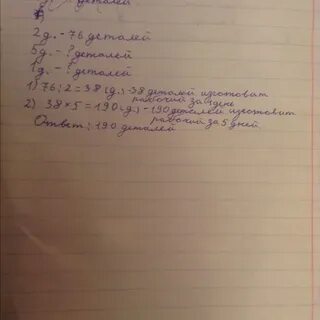 деталей
2д. - 76 деталей
5д. - ? деталей
1д. - ? деталей
1) 76:2=38 (д.) - 38 деталей изготовит
рабочий за 1 день
2) 38×5=190 (д.) - 190 деталей изготовит
рабочий за 5 дней.
Ответ: 190 деталей